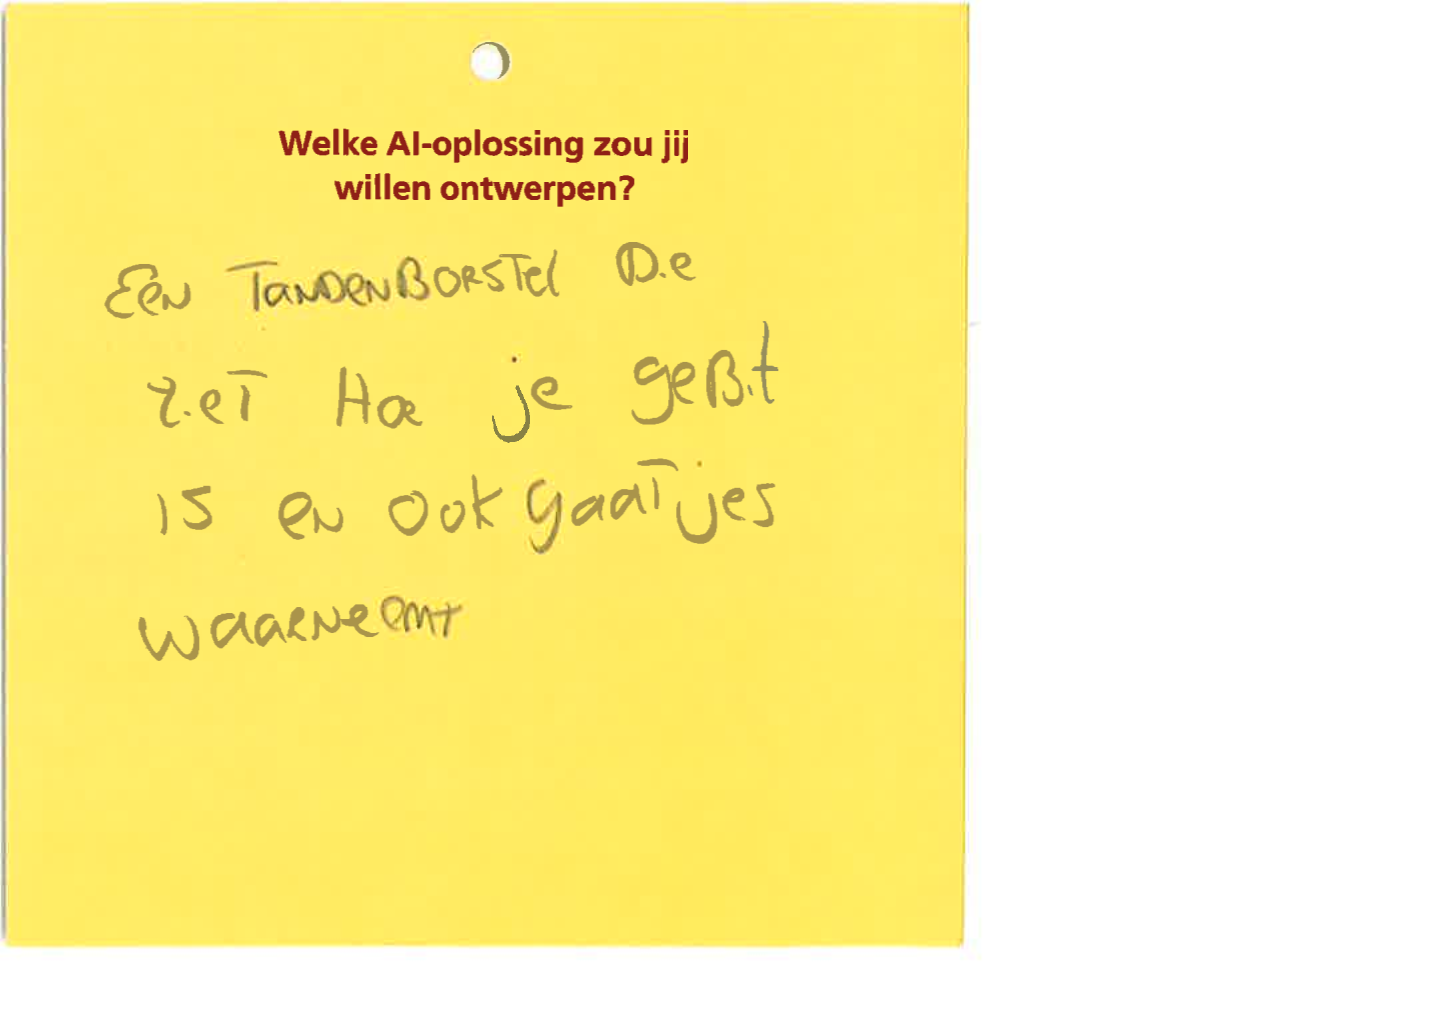 Welke AI-oplossing zou jij
willen ontwerpen?
Een TandenBorstel Die
ziet Hoe je geBit
is en ook gaatjes
waarneemt